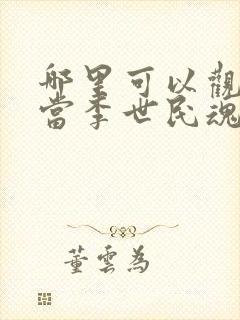 哪里可以觀
當李世民魂
董雲為